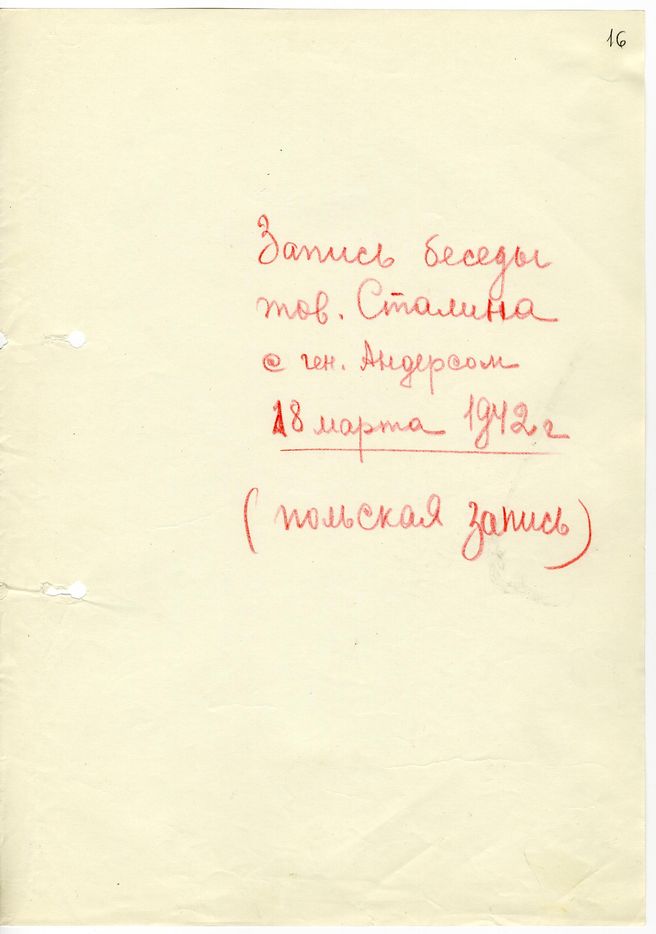 16
Запись беседы
тов. Сталина
с ген. Андерсом
18 марта 1942 г
(польская запись)